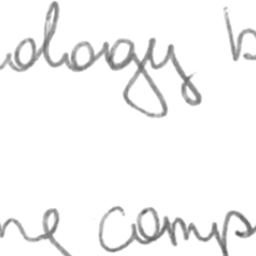 ology b
ne comp